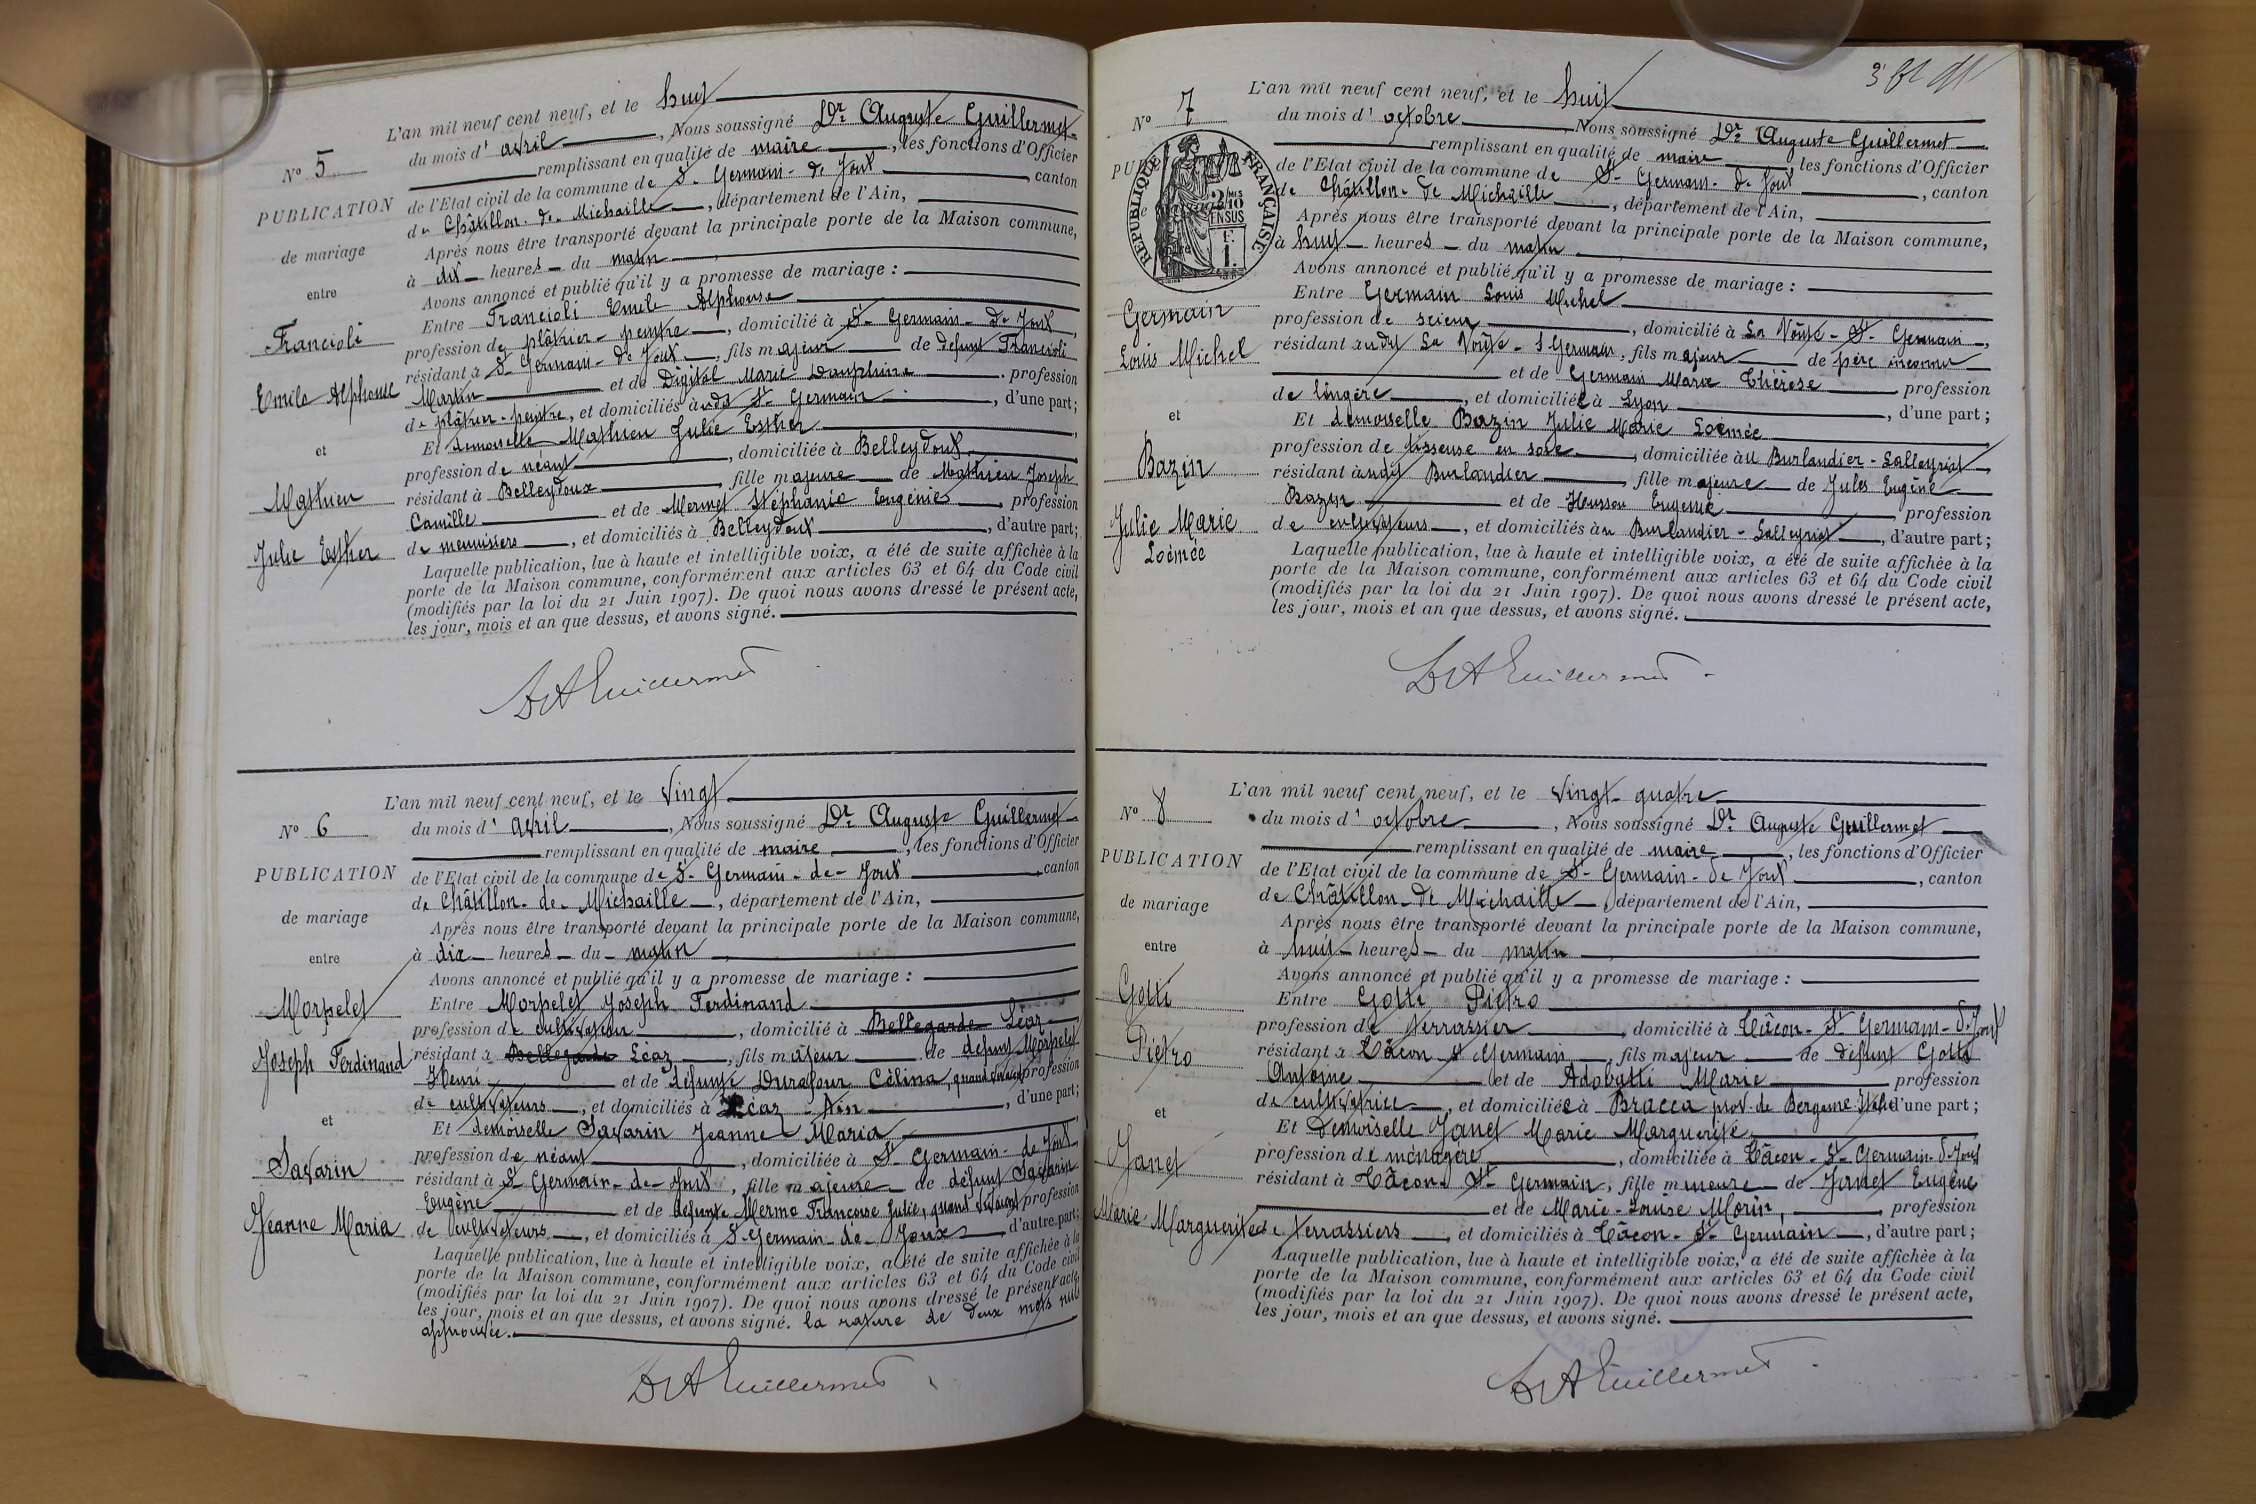 L'an mil neuf cent neuf, et le huit
N° 5
du mois d' avril , Nous soussigné Dr Auguste Guillermet
remplissant en qualité de maire , les fonctions d'Officier
PUBLICATION
de l'Etat civil de la commune de St Germain-de Joux , canton
de Châtillon-de-Michaille , département de l'Ain,
de mariage
Après nous être transporté devant la principale porte de la Maison commune,
à dix heures du matin
entre
Avons annoncé et publié qu'il y a promesse de mariage :
Entre Francioli Emile Alphonse
Francioli
profession de plâtrier-peintre , domicilié à St Germain-de Joux
résidant à St Germain-de Joux , fils majeur de défunt Francioli
Emile Alphonse
Martin et de Digital Marie Dauphine profession
de plâtrier-peintre, et domiciliés à St Germain , d'une part;
et
Et demoiselle Mathieu Julie Esther
profession de néant , domiciliée à Belleydoux
Mathieu
résidant à Belleydoux , fille majeure de Mathieu Joseph
Camille et de Mermet Stéphanie Eugénie profession
Julie Esther
de menuisiers , et domiciliés à Belleydoux , d'autre part;
Laquelle publication, lue à haute et intelligible voix, a été de suite affichée à la
porte de la Maison commune, conformément aux articles 63 et 64 du Code civil
(modifiés par la loi du 21 Juin 1907). De quoi nous avons dressé le présent acte,
les jour, mois et an que dessus, et avons signé.
Dr A Guillermet
L'an mil neuf cent neuf, et le Vingt
N° 6
du mois d' avril , Nous soussigné Dr Auguste Guillermet
remplissant en qualité de maire , les fonctions d'Officier
PUBLICATION
de l'Etat civil de la commune de St Germain-de-Joux , canton
de Châtillon-de-Michaille , département de l'Ain,
de mariage
Après nous être transporté devant la principale porte de la Maison commune,
entre
à dix heures du matin
Avons annoncé et publié qu'il y a promesse de mariage :
Morpelet
Entre Morpelet Joseph Ferdinand
profession de cultivateur , domicilié à Bellegarde Léaz
Joseph Ferdinand
résidant à Bellegarde Léaz , fils majeur de défunt Morpelet
Henri et de défunte Durafour Célina, quand vivaient profession
de cultivateurs , et domiciliés à Léaz - Ain , d'une part;
et
Et demoiselle Savarin Jeanne Maria
profession de néant , domiciliée à St Germain-de Joux
Savarin
résidant à St Germain-de-Joux , fille majeure de défunt Savarin
Eugène et de défunte Mermo Françoise Julie, quand vivaient profession
Jeanne Maria
de cultivateurs , et domiciliés à St Germain-de-Joux , d'autre part;
Laquelle publication, lue à haute et intelligible voix, a été de suite affichée à la
porte de la Maison commune, conformément aux articles 63 et 64 du Code civil
(modifiés par la loi du 21 Juin 1907). De quoi nous avons dressé le présent acte,
les jour, mois et an que dessus, et avons signé. la rature de deux mots nuls
approuvée.
Dr A Guillermet
L'an mil neuf cent neuf, et le huit
N° 7
du mois d' octobre , Nous soussigné Dr Auguste Guillermet
remplissant en qualité de maire les fonctions d'Officier
RÉPUBLIQUE FRANÇAISE
de l'Etat civil de la commune de St Germain-de Joux , canton
de Châtillon-de Michaille , département de l'Ain,
Après nous être transporté devant la principale porte de la Maison commune,
à huit heures du matin
Avons annoncé et publié qu'il y a promesse de mariage :
Entre Germain Louis Michel
Germain
profession de scieur , domicilié à La Voûte-St Germain
Louis Michel
résidant audit La Voûte-St Germain, fils majeur de père inconnu
et de Germain Marie Thérèse profession
de lingère , et domiciliée à Lyon , d'une part;
et
Et demoiselle Bazin Julie Marie Loémée
profession de tisseuse en soie , domiciliée au Burlandier-Lalleyriat
Bazin
résidant audit Burlandier , fille majeure de Jules Eugène
Bazin et de Husson Eugénie profession
Julie Marie
de cultivateurs , et domiciliés au Burlandier-Lalleyriat , d'autre part;
Loémée
Laquelle publication, lue à haute et intelligible voix, a été de suite affichée à la
porte de la Maison commune, conformément aux articles 63 et 64 du Code civil
(modifiés par la loi du 21 Juin 1907). De quoi nous avons dressé le présent acte,
les jour, mois et an que dessus, et avons signé.
Dr A Guillermet
L'an mil neuf cent neuf, et le Vingt-quatre
N° 8
du mois d' octobre , Nous soussigné Dr Auguste Guillermet
remplissant en qualité de maire , les fonctions d'Officier
PUBLICATION
de l'Etat civil de la commune de St Germain-de Joux , canton
de Châtillon-de Michaille , département de l'Ain,
de mariage
Après nous être transporté devant la principale porte de la Maison commune,
entre
à huit heures du matin
Avons annoncé et publié qu'il y a promesse de mariage :
Gotti
Entre Gotti Pietro
profession de terrassier , domicilié à Tâcon-St Germain-d.Joux
Pietro
résidant à Tâcon St Germain , fils majeur de défunt Gotti
Antoine et de Adobatti Marie profession
de cultivatrice , et domiciliée à Bracca prov. de Bergame Italie d'une part;
et
Et Demoiselle Janet Marie Marguerite
profession de ménagère , domiciliée à Tâcon-St Germain-d.Joux
Janet
résidant à Tâcon-St Germain, fille mineure de Janet Eugène
et de Marie-Louise Morin, profession
Marie-Marguerite
de terrassiers , et domiciliés à Tâcon-St Germain , d'autre part;
Laquelle publication, lue à haute et intelligible voix, a été de suite affichée à la
porte de la Maison commune, conformément aux articles 63 et 64 du Code civil
(modifiés par la loi du 21 Juin 1907). De quoi nous avons dressé le présent acte,
les jour, mois et an que dessus, et avons signé.
Dr A Guillermet